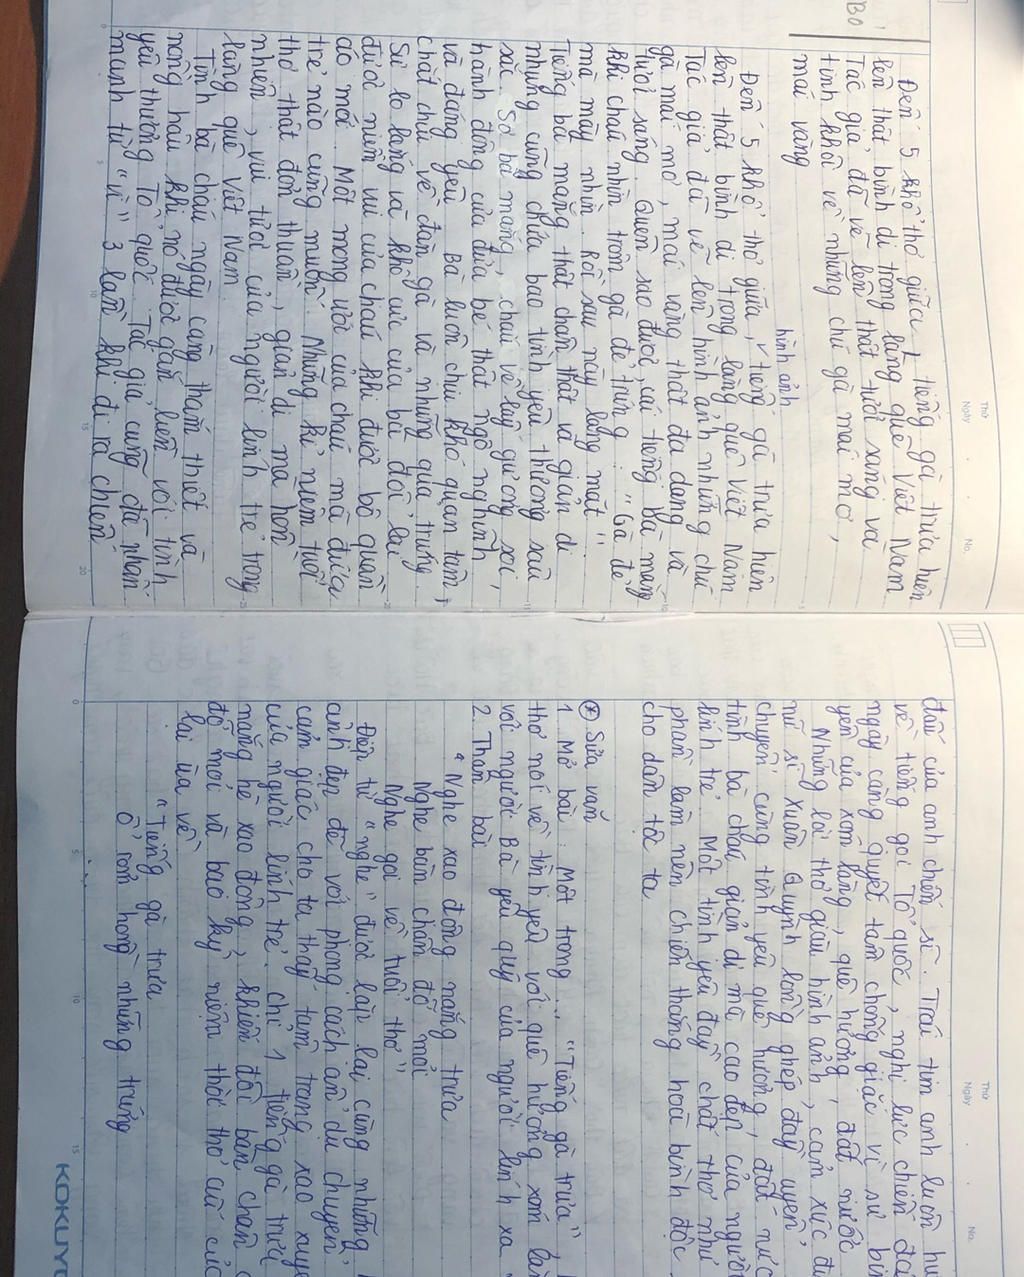 Bo
Thứ
Ngày
No.
Đến 5 khổ thơ giữa, tiếng gà trưa hiện
lên thật bình dị trong làng quê Việt Nam
Tác giả đã vẽ lên thật tươi sáng và
tinh khôi về những chú gà mái mơ,
mái vàng
hình ảnh
Đến 5 khổ thơ giữa, tiếng gà trưa hiện
lên thật bình dị trong làng quê Việt Nam
Tác giả đã vẽ lên hình ảnh những chú
gà mái mơ, mái vàng thật đa dạng và
tươi sáng. Quên sao được, cái tiếng Bà mắng
khi cháu nhìn trộm gà đẻ trứng: "Gà đẻ
mà mày nhìn. Rồi sau này lang mặt".
Tiếng bà mắng thật chân thật và giản dị
nhưng cũng chứa bao tình yêu thương sâu
sắc. Sợ bà mắng, cháu về lấy gương soi,
hành động của đứa bé thật ngộ nghĩnh
và đáng yêu. Bà luôn chịu khó quan tâm,
chắt chiu về đàn gà và những quả trứng
Sự lo lắng và khổ cực của bà đổi lại
được niềm vui của cháu khi được bộ quần
áo mới. Một mong ước của cháu mà đứa
trẻ nào cũng muốn. Những kỉ niệm tuổi
thơ thật đơn thuần, giản dị mà hồn
nhiên, vui tươi của người lính trẻ trong
làng quê Việt Nam
Tình bà cháu ngày càng thắm thiết và
nồng hậu khi nó được gắn liền với tình
yêu thương Tổ quốc. Tác giả cũng đã nhấn
mạnh từ "vì" 3 lần khi đi ra chiến
Thứ
Ngày
No.
đấu của anh chiến sĩ. Trái tim anh luôn
về tiếng gọi Tổ quốc, nghị lực chiến
ngày càng quyết tâm chống giặc vì sự
yên của xóm làng, quê hương, đất nước
Những lời thơ giàu hình ảnh, cảm xúc
nữ sĩ Xuân Quỳnh lồng ghép đầy uyển
chuyển cùng tình yêu quê hương, đất
tình bà cháu giản dị mà cao đẹp của người
lính trẻ. Một tình yêu đầy chất thơ như
phần làm nên chiến thắng hoà bình độc
cho dân tộc ta
* Sửa văn
1. Mở bài: Một trong ... "Tiếng gà trưa"
thơ nói về tình yêu với quê hương xóm
với người Bà yêu quý của người lính xa
2. Thân bài
"Nghe xao động nắng trưa
Nghe bàn chân đỡ mỏi
Nghe gọi về tuổi thơ"
Điệp từ "nghe" được lặp lại cùng những
ảnh đẹp đẽ với phong cách ẩn dụ chuyển
cảm giác cho ta thấy tâm trạng xao
của người lính trẻ. Chỉ 1 tiếng gà trưa
nắng hè xao động, khiến đôi bàn chân
đỡ mỏi và bao kỷ niệm thời thơ
lại ùa về
"Tiếng gà trưa
Ổ rơm hồng những trứng
KOKUYO